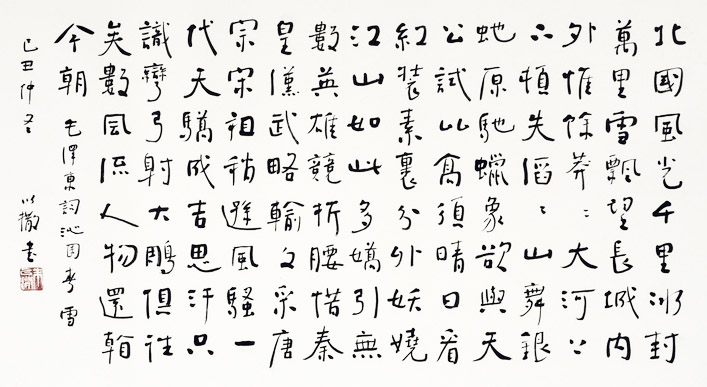 北國風光千里冰封
萬里雪飄望長城內
外惟餘莽〻大河上
下頓失滔〻山舞銀
蛇原馳蠟象欲與天
公試比高須晴日看
紅裝素裹分外妖嬈
江山如此多嬌引無
數英雄競折腰惜秦
皇漢武略輸文采唐
宗宋祖稍遜風騷一
代天驕成吉思汗只
識彎弓射大鵰俱往
矣數風流人物還看
今朝 毛澤東詞沁园春 雪
己丑仲冬 以撒書